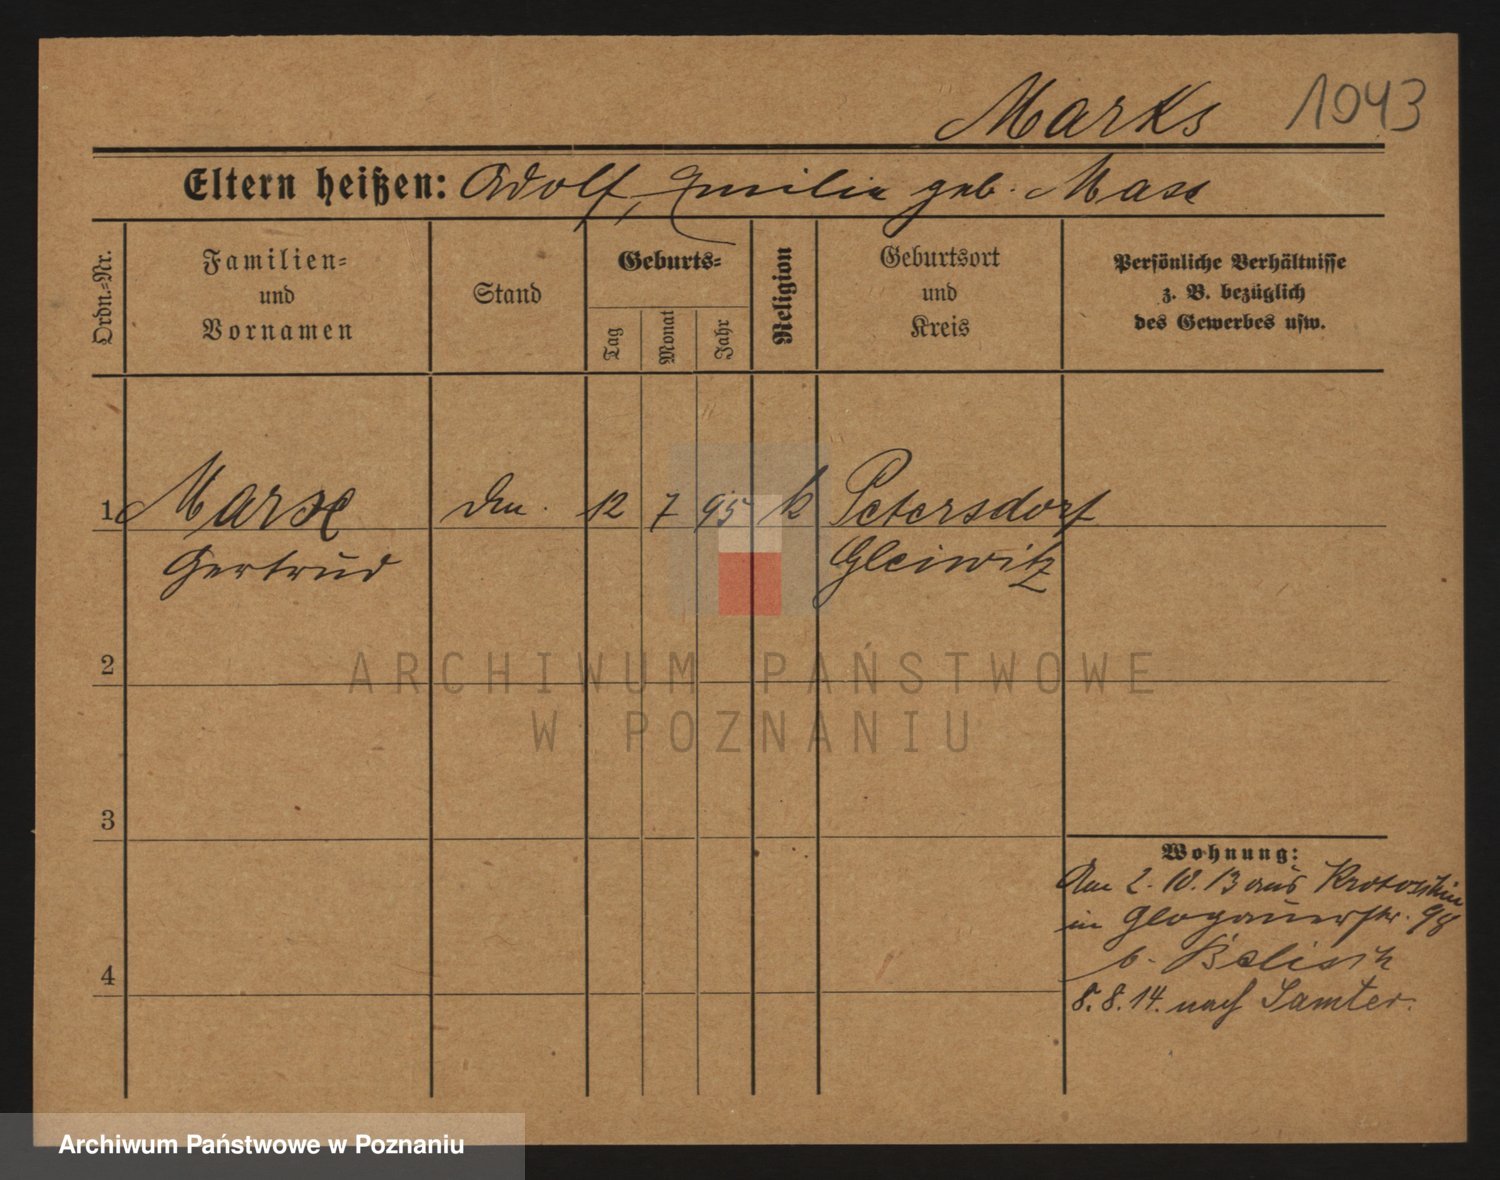 Marks 1043
Eltern heißen: Adolf, Emilie geb. Mass
Ordn.-Nr.
Familien-
und
Vornamen
Stand
Geburts-
Tag
Monat
Jahr
Religion
Geburtsort
und
Kreis
Persönliche Verhältnisse
z. B. bezüglich
des Gewerbes usw.
1 Marx 12 7 95 k Petersdorf
Gertrud Gleiwitz
ARCHIWUM PAŃSTWOWE
W POZNANIU
2
3
Wohnung:
Am 2. 10. 13 aus Krotoschin
in Glogauerstr. 98
b.
4
8. 8. 14. nach Samter.
Archiwum Państwowe w Poznaniu